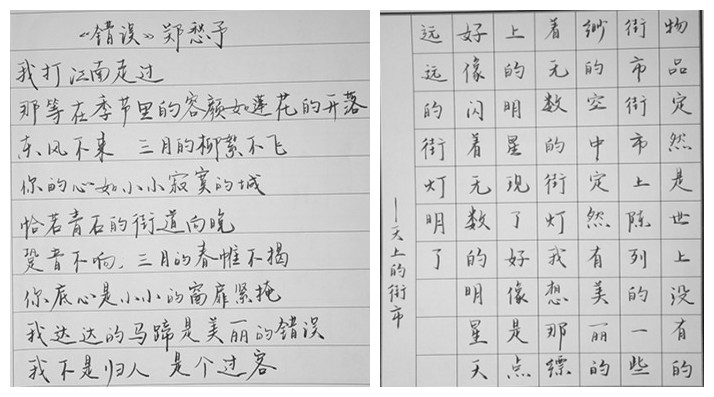 《错误》郑愁予
我打江南走过
那等在季节里的容颜如莲花的开落
东风不来 三月的柳絮不飞
你的心如小小寂寞的城
恰若青石的街道向晚
跫音不响,三月的春帷不揭
你底心是小小的窗扉紧掩
我达达的马蹄是美丽的错误
我不是归人 是个过客
远远的街灯明了
好像闪着无数的明星天
上的明星现了好像是点
着无数的街灯我想那缥
缈的空中定然有美丽的
街市街市上陈列的一些
物品定然是世上没有的
—天上的街市